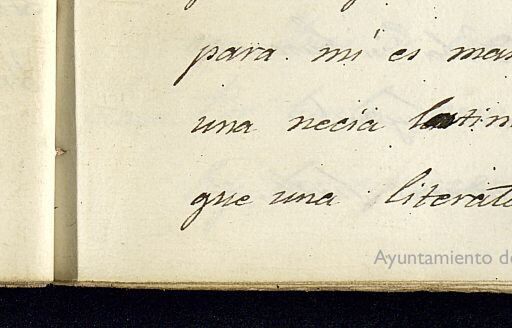 para mi es mas
una necia
que una literat
Ayuntamiento d